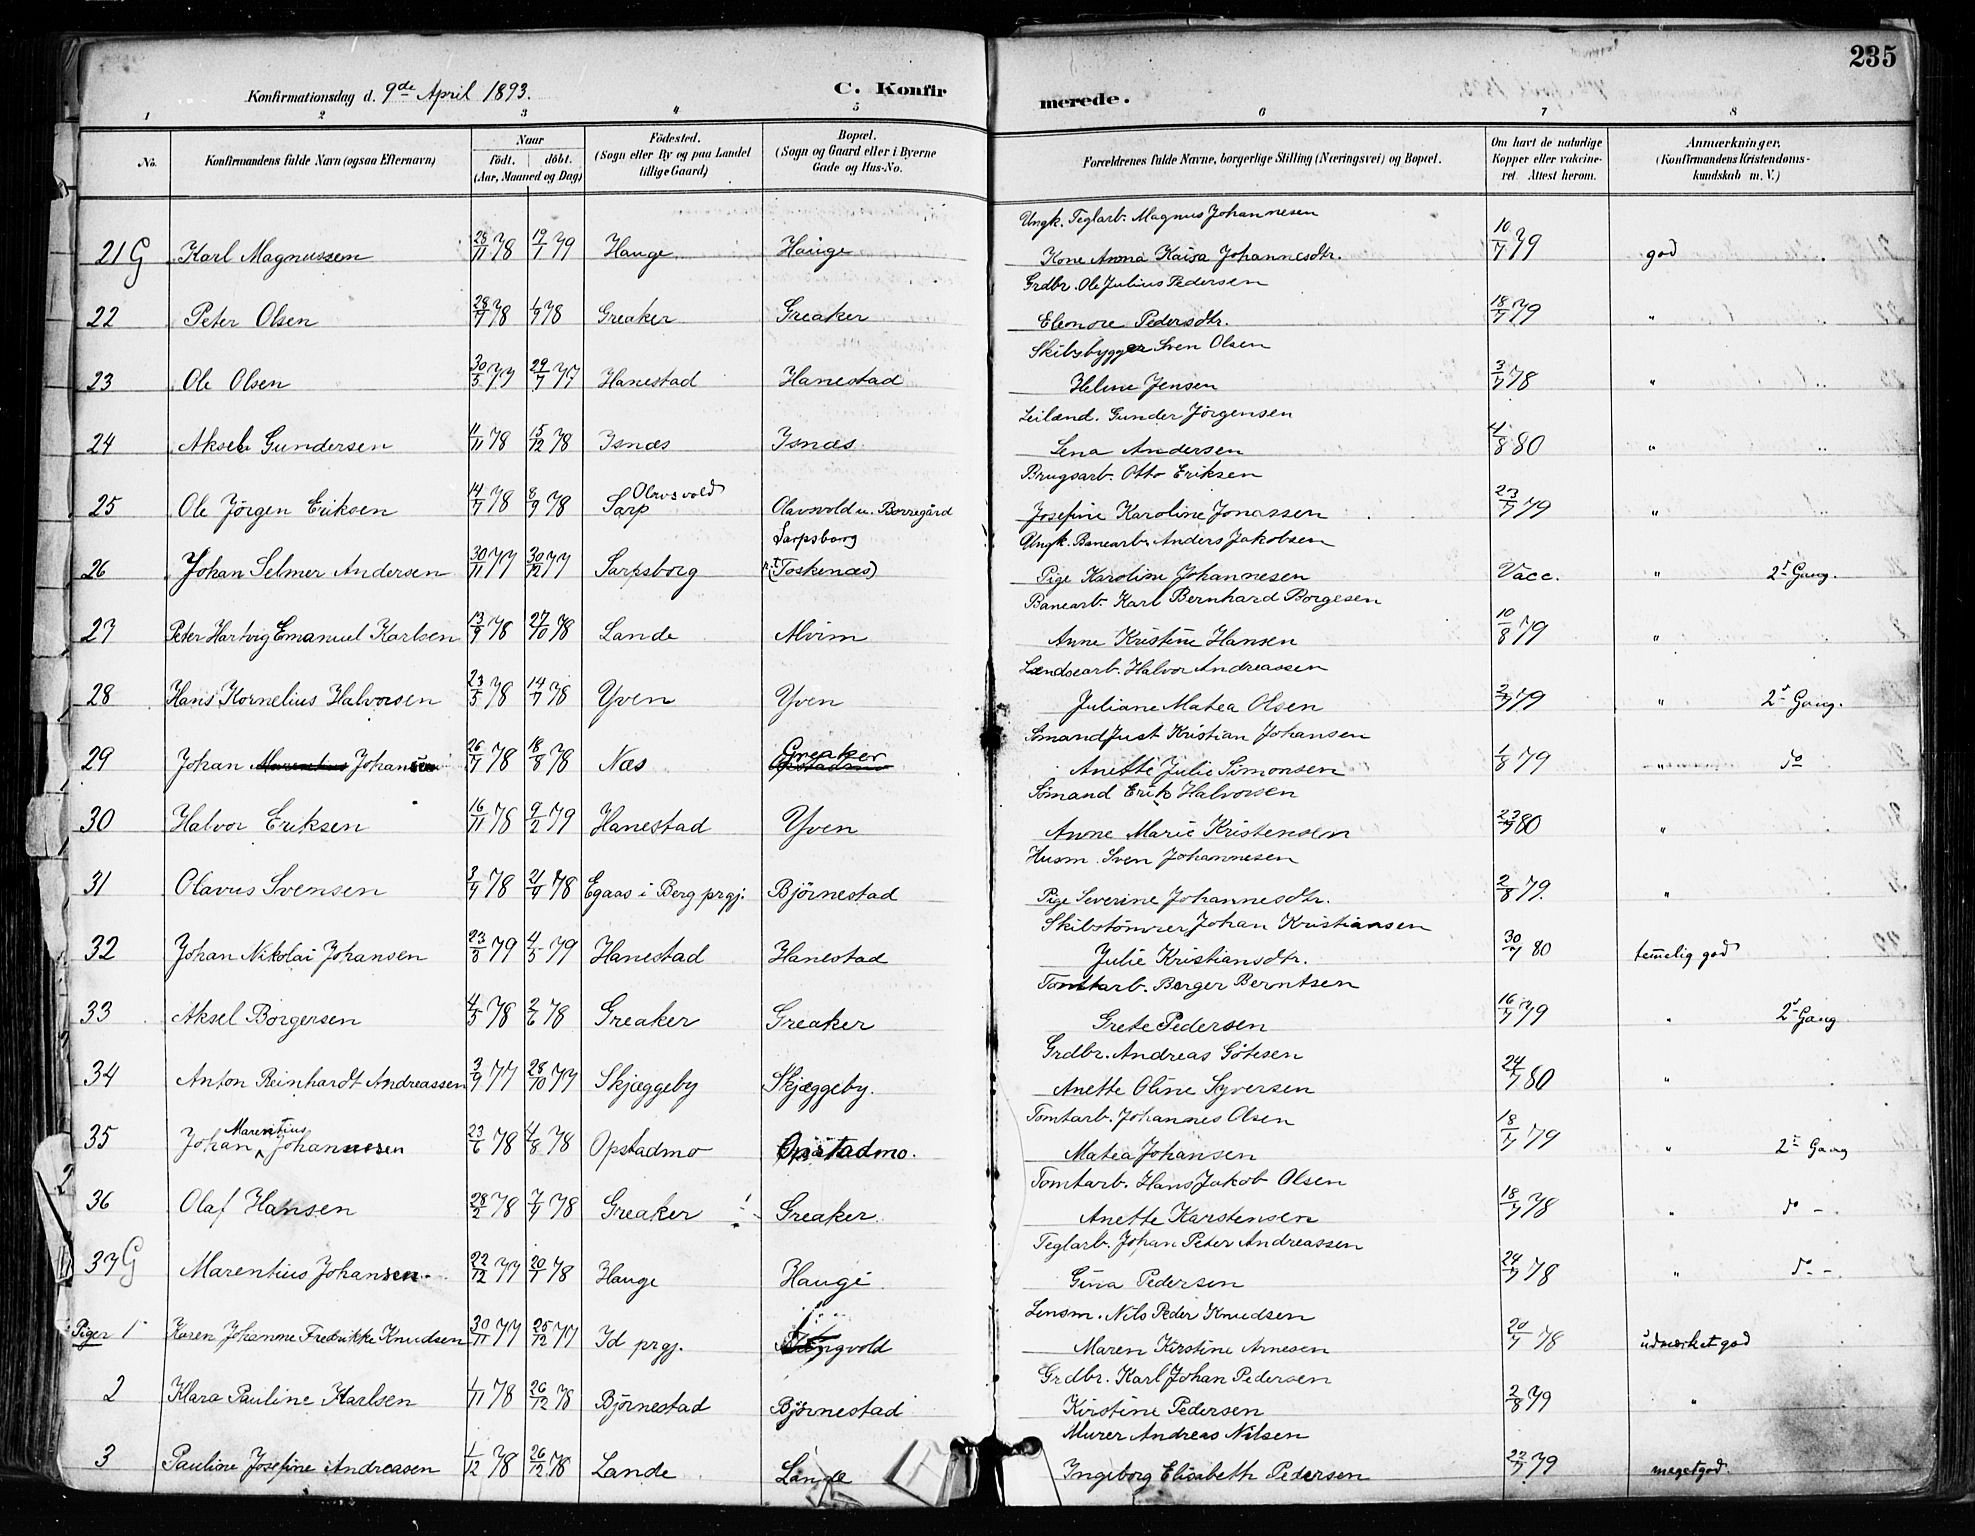 235
Konfirmationsdag d. 9de April 1893. C. Konfirmerede.
1 2 3 4 5 6 7 8
No. Konfirmandens fulde Navn (ogsaa Efternavn) Naar født. døbt. (Aar, Maaned og Dag) Födested. (Sogn eller By og paa Landet tillige Gaard) Bopæl. (Sogn og Gaard eller i Byerne Gade og Hus-No. Forældrenes fulde Navne, borgerlige Stilling (Næringsvei) og Bopæl. Om havt de naturlige Kopper eller vakcineret. Attest herom. Anmærkninger. (Konfirmandens Kristendomskundskab m. V.)
Ungk. Teglarb. Magnus Johannesen
21 G Karl Magnussen 28/11 78 19/1 79 Hauge Hauge Kone Anna Kaisa Johannesdtr. 10/7 79 god
Grdbr. Ole Julius Pedersen
22 Peter Olsen 28/7 78 1/9 78 Greaker Greaker Eleonore Pedersdtr. 18/7 79 "
Skibsbygger Sven Olsen
23 Ole Olsen 30/5 77 29/7 77 Hanestad Hanestad Helene Jensen 3/7 78 "
Leilænd. Gunder Jørgensen
24 Aksel Gundersen 11/11 78 15/12 78 Isnæs Isnæs. Lena Andersen 4/8 80 "
Brugsarb. Otto Eriksen
25 Ole Jörgen Eriksen 14/7 78 8/9 78 Sarp Olavsvold Olavsvold u. Borregård Josefine Karoline Jonassen 23/7 79 "
Ungk. Banearb. Anders Jakobsen
26 Johan Selmer Andersen 30/11 77 30/12 77 Sarpsborg Sarpsborg (Toskenæs) Pige Karoline Johannesen Vacc. " 2d Gang.
Banearb. Karl Bernhard Borgesen
27 Peter Hartvig Emanuel Karlsen 13/9 78 27/10 78 Lande Alvim Anne Kristine Hansen 10/8 79 "
Lændsearb. Halvor Andreassen
28 Hans Kornelius Halvorsen 23/5 78 14/7 78 Yven Yven Juliane Matea Olsen 2/7 79 " 2d Gang.
Sömand Just Kristian Johansen
29 Johan Marentius Johansen 26/7 78 18/8 78 Næs Greaker Opstadmo Anette Julie Simonsen 1/8 79 " do
Sømand Erik Halvorsen
30 Halvor Eriksen 16/11 78 9/2 79 Hanestad Yven Anne Marie Kristensen 23/7 80 "
Husm. Sven Johannesen
31 Olavus Svensen 3/7 78 21/9 78 Egaas i Berg prgj. Björnestad Pige Severine Johannesdtr. 2/8 79. "
Skibstømrer Johan Kristiansen
32 Johan Nikolai Johansen 23/3 79 4/5 79 Hanestad Hanestad Julie Kristiansdtr. 30/7 80 temelig god
Tomtarb. Borger Berntsen
33 Aksel Borgersen 4/5 78 2/6 78 Greaker Greaker Grete Pedersen 16/7 79 " 2d Gang
Grdbr. Andreas Götesen
34 Anton Reinhardt Andreassen 3/9 77 28/10 77 Skjæggeby Skjæggeby. Anette Oline Syversen 24/7 80 "
Tomtarb. Johannes Olsen
35 Johan Marentius Johannesen 23/6 78 4/8 78 Opstadmo Opstadmo. Matea Johansen 18/7 79 " 2d Gang
Tomtarb. Hans Jakob Olsen
36 Olaf Hansen 28/2 78 7/4 78 Greaker Greaker. Anette Karstensen 18/7 78 " do -
Teglarb. Johan Peter Andreassen
37 G Marentius Johansen 22/12 77 20/1 78 Hauge Hauge Gina Pedersen 24/7 78 " do -
Lensm. Nils Peder Knudsen
Piger 1 Karen Johanne Fredrikke Knudsen 30/11 77 25/12 77 Id prgj. Maren Kirstine Arnesen 20/7 78 udmærket god
Grdbr. Karl Johan Pedersen
2 Klara Pauline Karlsen 1/11 78 26/12 78 Björnestad Björnestad Kirstine Pedersen 2/8 79 "
Murer Andreas Nilsen
3 Pauline Josefine Andreasen 1/12 78 26/12 78 Lande Lande Ingeborg Elisabeth Pedersen 22/7 79 meget god.